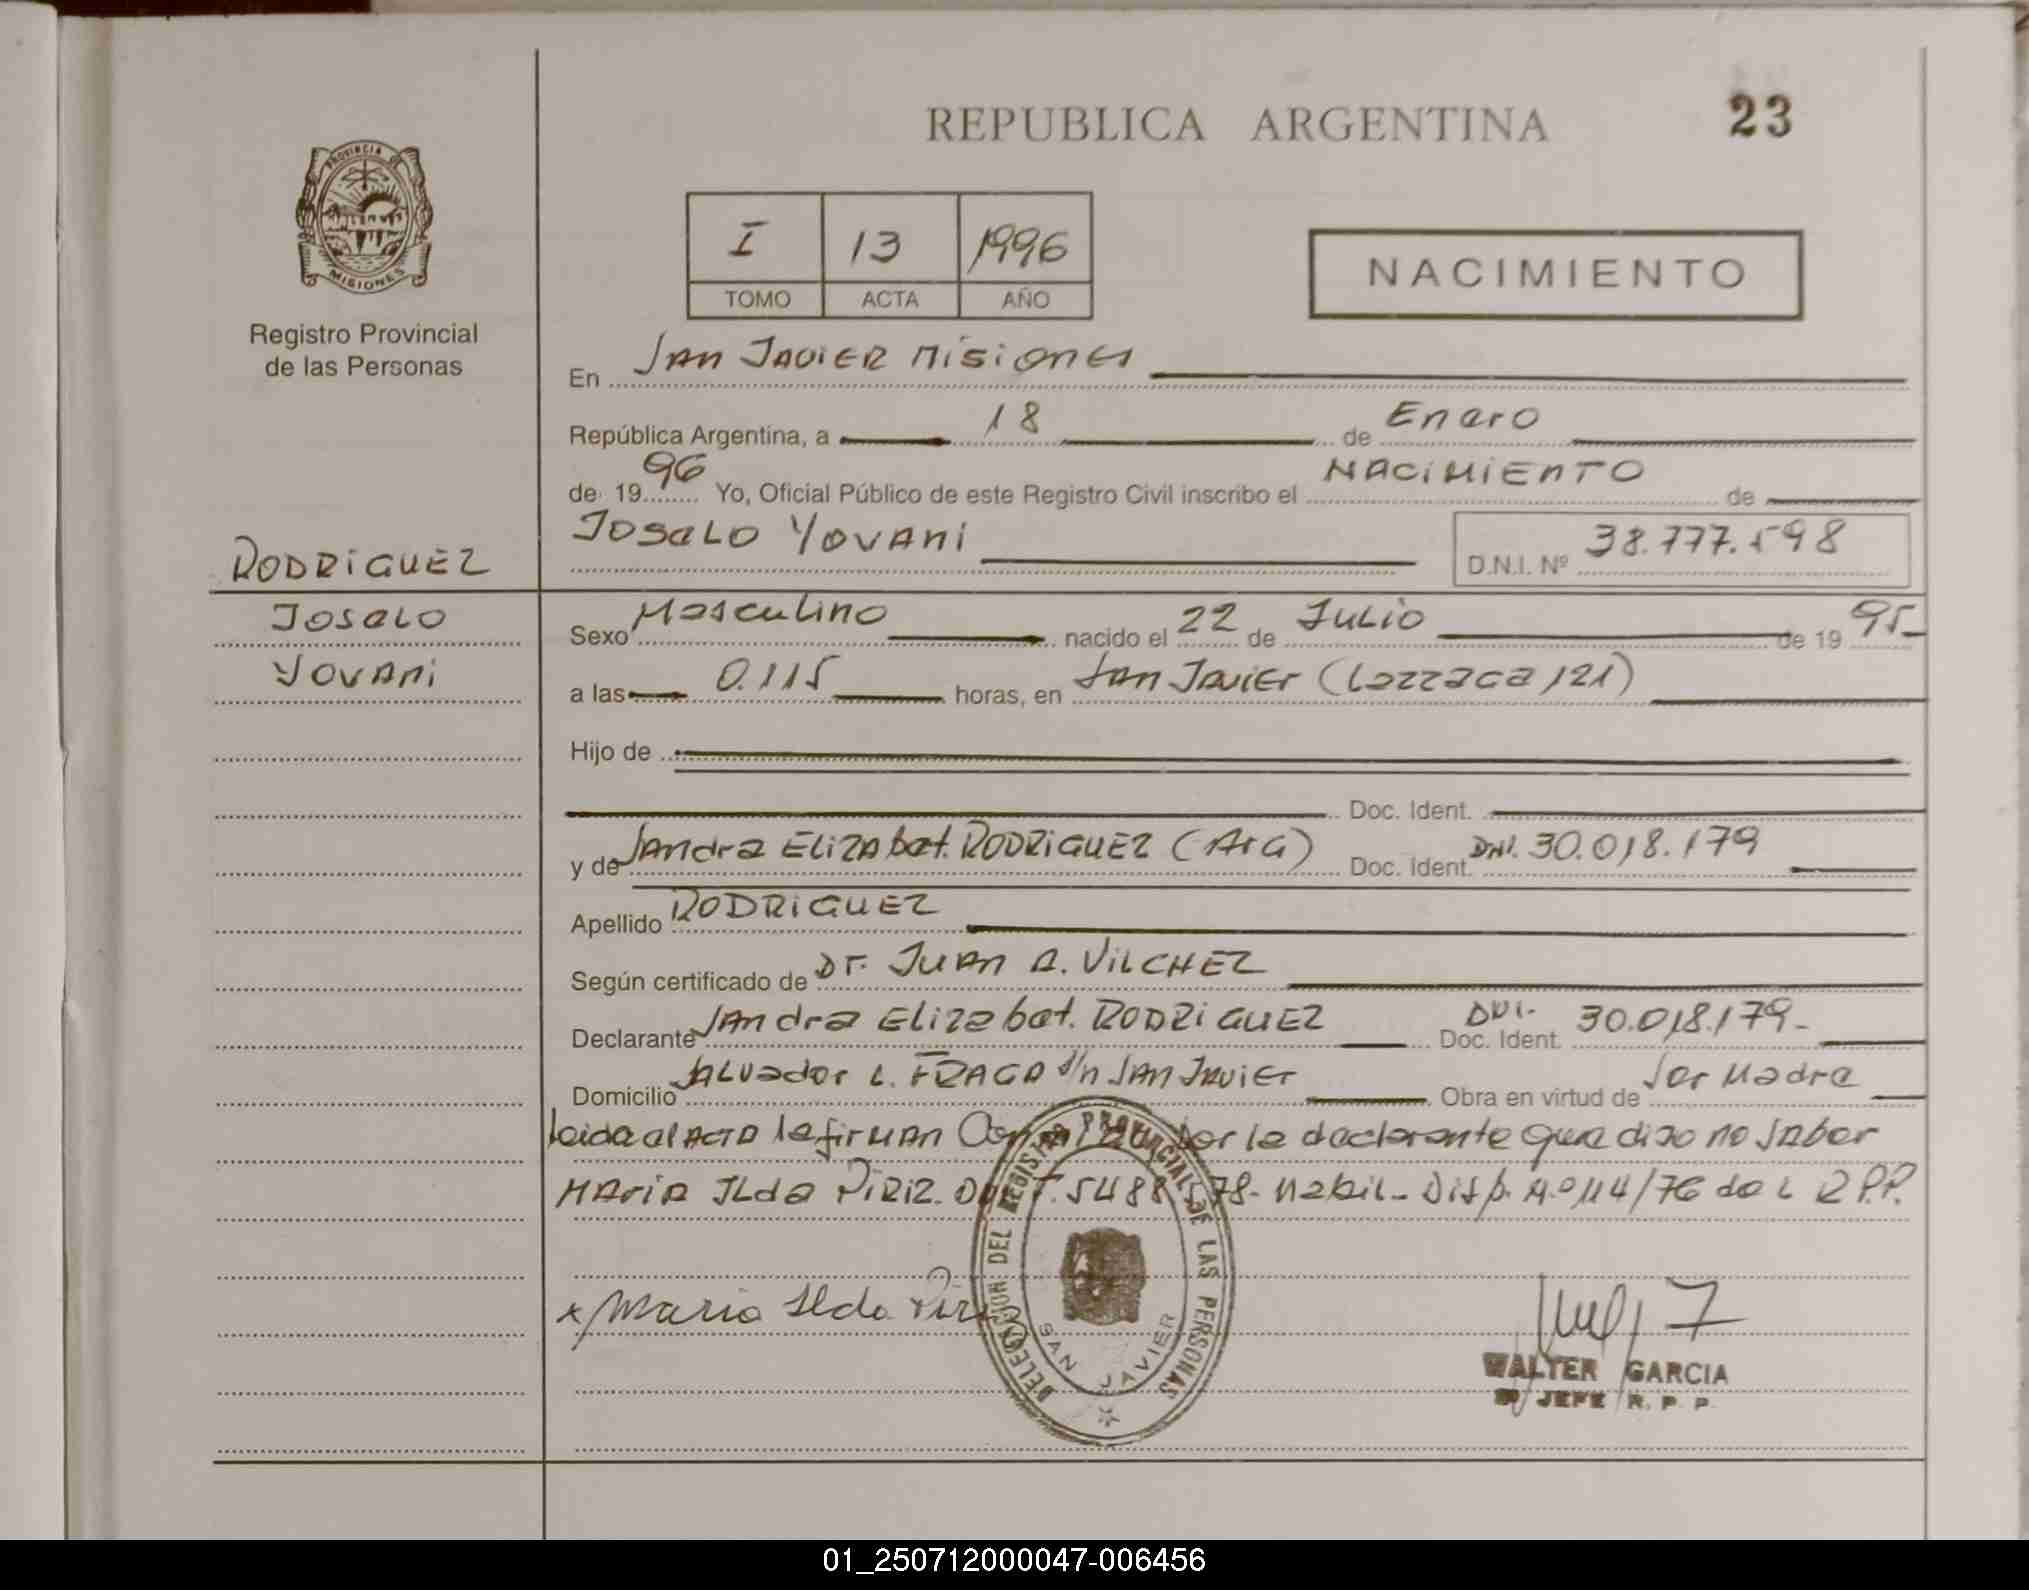 REPUBLICA ARGENTINA
23
PROVINCIA DE
MISIONES
Registro Provincial
de las Personas
I 13 1996
TOMO ACTA AÑO
NACIMIENTO
En San Javier Misiones
República Argentina, a 18 de Enero
de 1996 Yo, Oficial Público de este Registro Civil inscribo el NACIMIENTO de
Josalo Yovani
D.N.I. Nº 38.777.598
RODRIGUEZ
Josalo
Yovani
Sexo Masculino nacido el 22 de Julio de 1995
a las 0.115 horas, en San Javier (Larraga 121)
Hijo de
Doc. Ident.
y de Sandra Elizabet. RODRIGUEZ (Arg) Doc. Ident. DNI. 30.018.179
Apellido RODRIGUEZ
Según certificado de Dr. Juan A. VILCHEZ
Declarante Sandra Elizabet. RODRIGUEZ Doc. Ident. DNI. 30.018.179-
Domicilio Salvador L. FRAGA s/n San Javier Obra en virtud de Ser Madre
Leida el Acta la firman por la declarante que dijo no saber
Maria Ilda Piriz. F. 5488578- Habil- Disp. N.º 114/76 de L R.P.P.
x Maria Ilda Piriz
DELEGACION DEL REGISTRO PROVINCIAL DE LAS PERSONAS
SAN JAVIER
WALTER GARCIA
JEFE R. P. P.
01_250712000047-006456